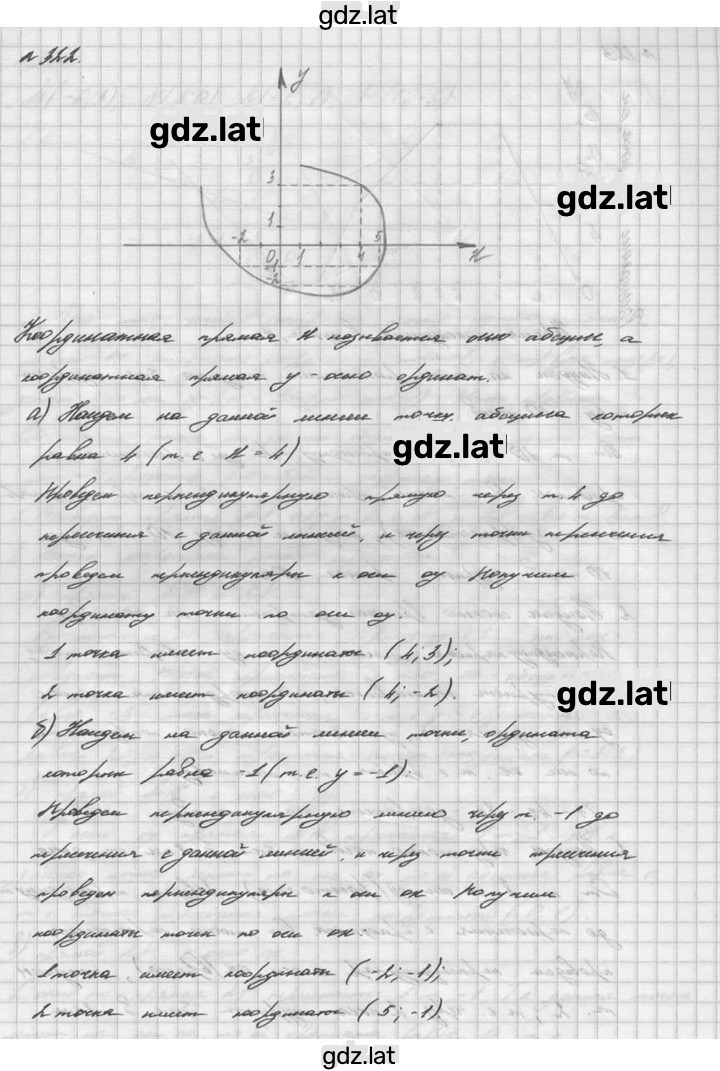 gdz.lat
№ 322.
y
gdz.lat
gdz.lat
3
1
-2 0 1 4 5 x
-1
-2
Координатная прямая x называется осью абсцисс, а
координатная прямая y - осью ординат.
а) Найдем на данной линии точку, абсцисса которых
gdz.lat
равна 4 (т.е. x = 4)
Проведем перпендикулярную прямую через т. 4 до
пересечения с данной линией, и через точки пересечения
проведем перпендикуляры к оси oy Получим
координату точки по оси oy.
1 точка имеет координаты (4; 3);
2 точка имеет координаты (4; -2).
gdz.lat
б) Найдем на данной линии точки, ордината
которых равна -1 (т.е. y = -1):
Проведем перпендикулярную линию через т. -1 до
пересечения с данной линией, и через точки
проведем перпендикуляры к оси ox Получим
координаты точек по оси ox.
1 точка, имеет координаты (-2; -1);
2 точка имеет координаты (5; -1).
gdz.lat